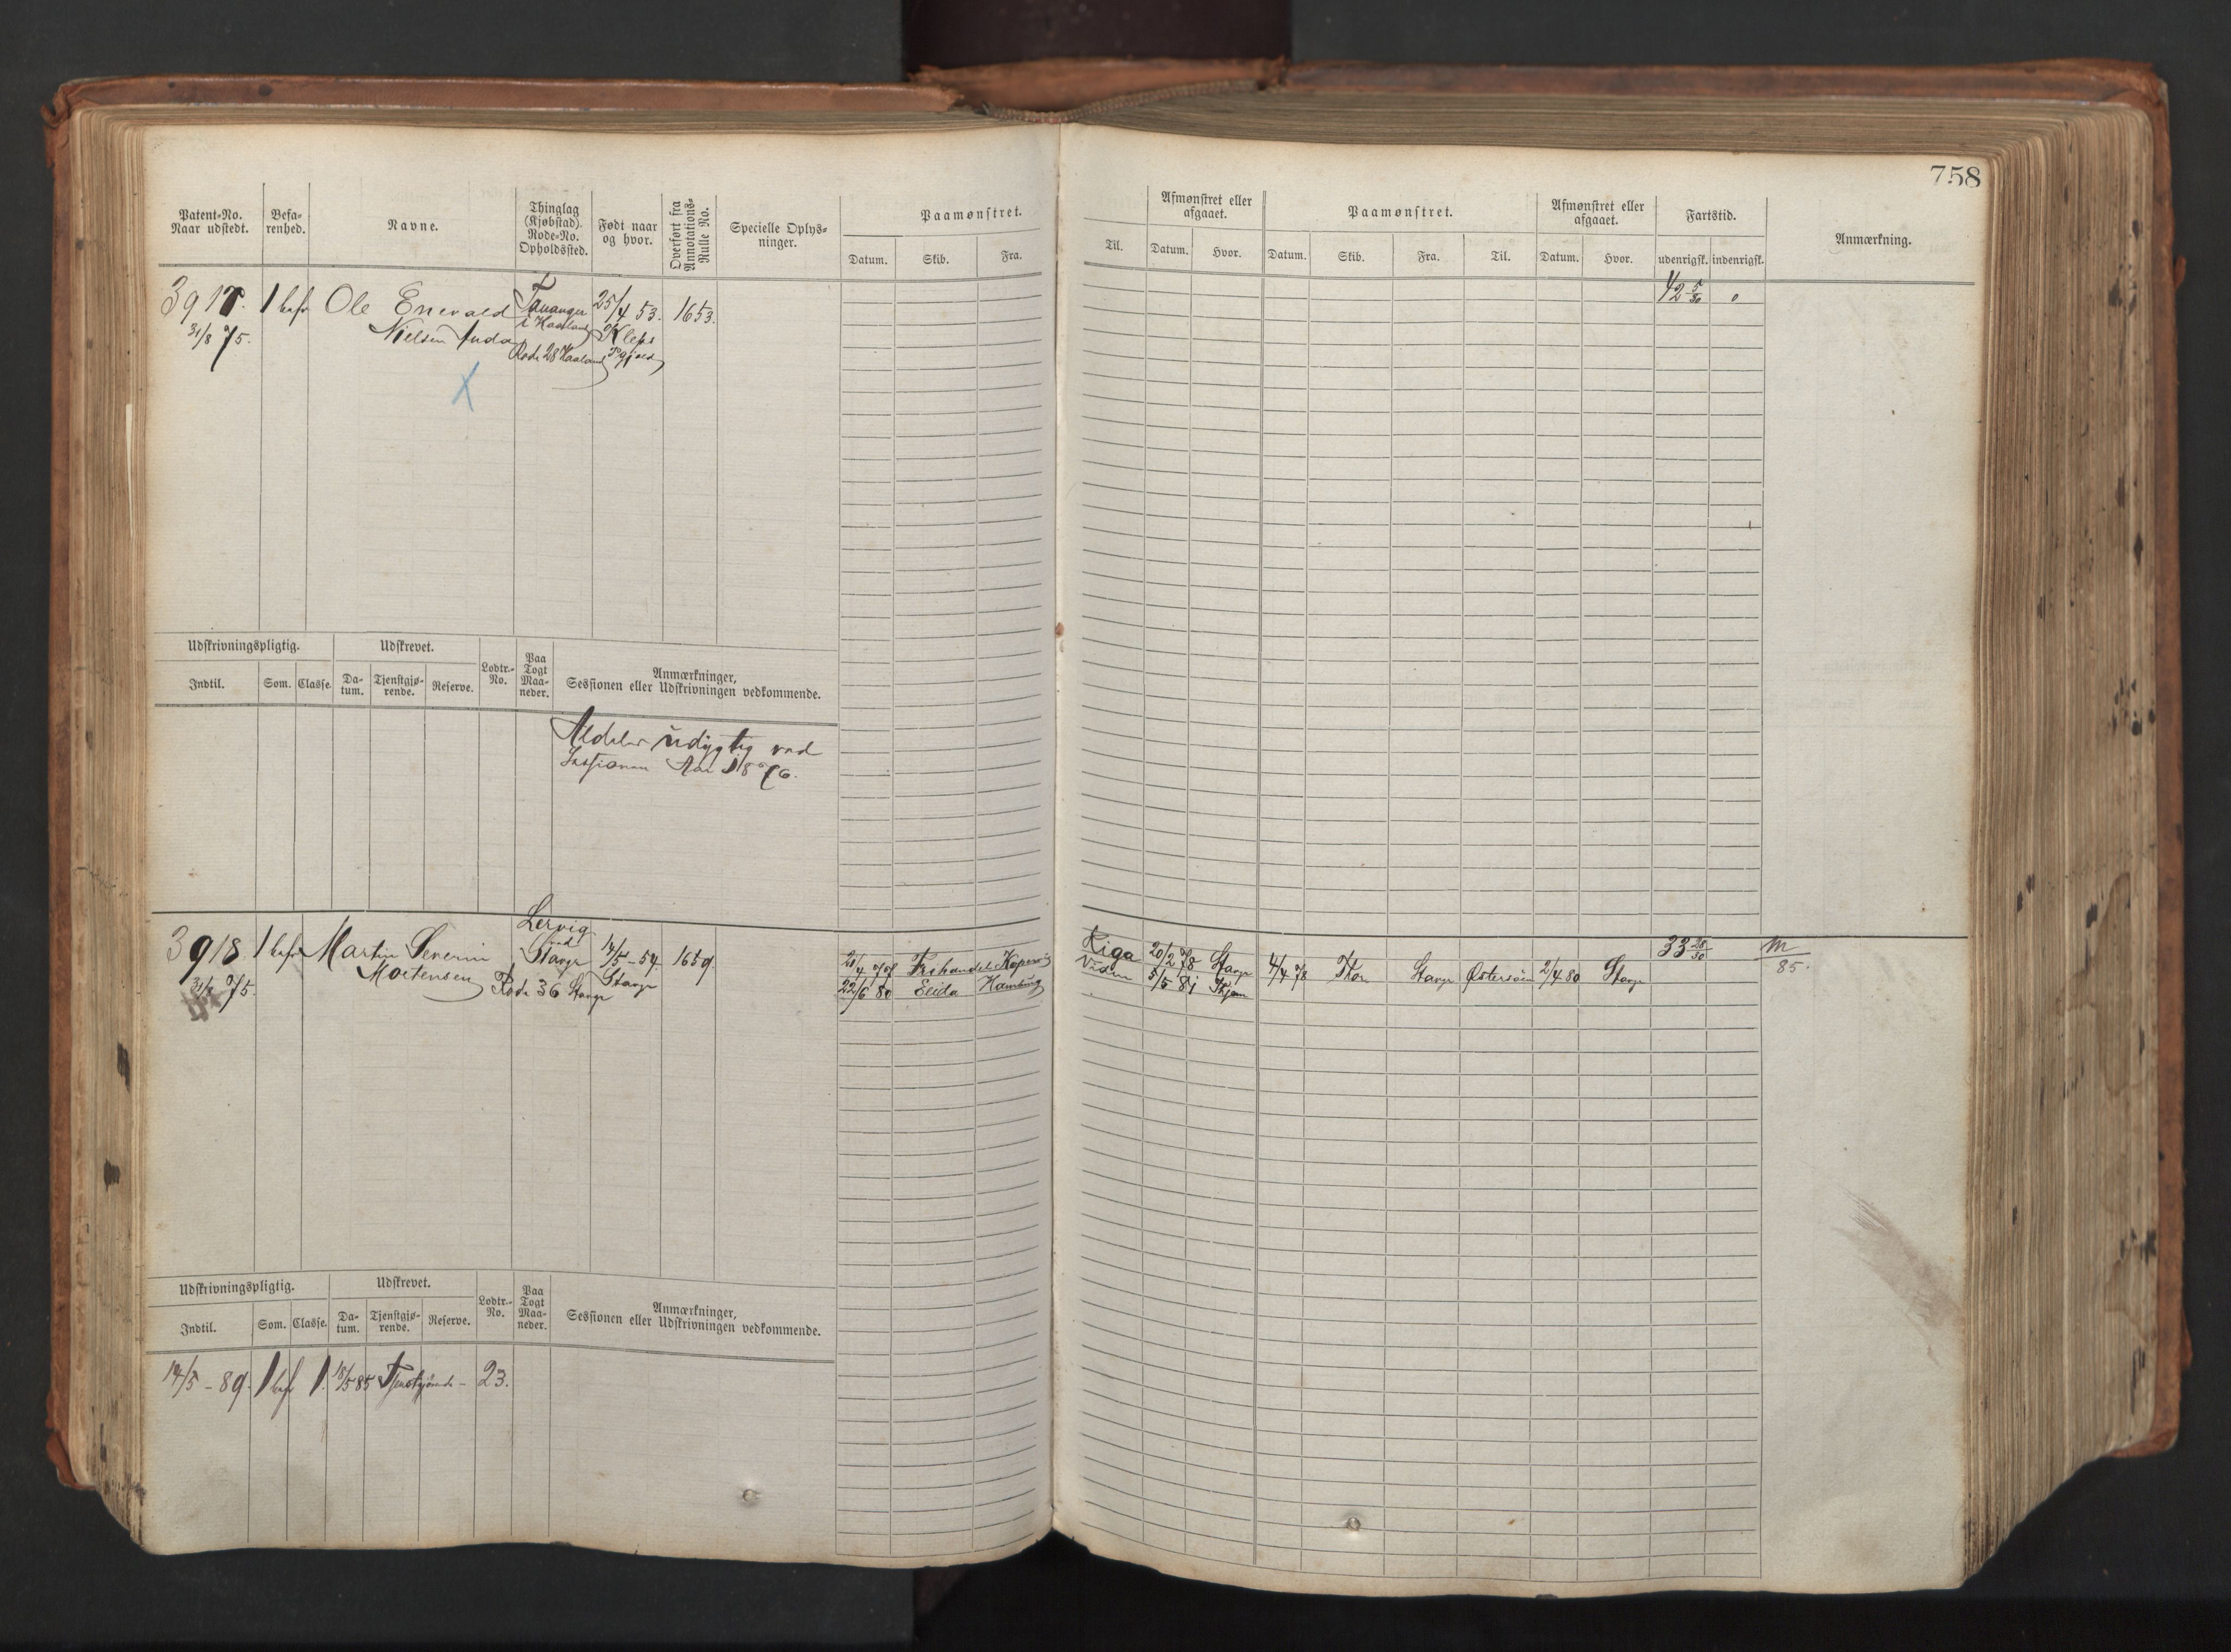 758
Patent-No. Naar udstedt.
Befarenhed.
Navne.
Thinglag (Kjøbstad). Rode-No. Opholdssted.
Født naar og hvor.
Overført fra Annotations-Rulle No.
Specielle Oplysninger.
Paamønstret.
Datum. Skib. Fra. Til.
Afmønstret eller afgaaet.
Datum. Hvor.
Paamønstret.
Datum. Skib. Fra. Til.
Afmønstret eller afgaaet.
Datum. Hvor.
Fartstid.
udenrigsk. indenrigsk.
Anmærkning.
3917. 1 bef Ole Enevald Tananger 25/4 53. 1653. 42 5/30 0
31/8 75. Nielsen i Haaland Klep
Rode 28 Haaland Pgjæld
X
Udskrivningspligtig.
Indtil. Som. Classe.
Udskrevet.
Datum. Tjenstgjørende. Reserve.
Lodtr.-No.
Paa Togt Maaneder.
Anmærkninger, Sessionen eller Udskrivningen vedkommende.
Aldeles udygtig ved
Sessionen Aar 1876.
Lervig
3918 1 bef Martin Severin ved Stavgr 14/5-54 1659 Kopervig Riga 20/2 78 Stavgr 4/4 78 Thor Stavgr Østersöen 2/4 80 Stavgr 33 28/30 M
31/8 75. Mortensen Rode 36 Stavgr Stavgr 22/6 80 Elida Hamburg 5/5 81 85.
Udskrivningspligtig.
Indtil. Som. Classe.
Udskrevet.
Datum. Tjenstgjørende. Reserve.
Lodtr.-No.
Paa Togt Maaneder.
Anmærkninger, Sessionen eller Udskrivningen vedkommende.
14/5-89. 1 bef 1. 18/5 85 Tjenstgjörende- 23.